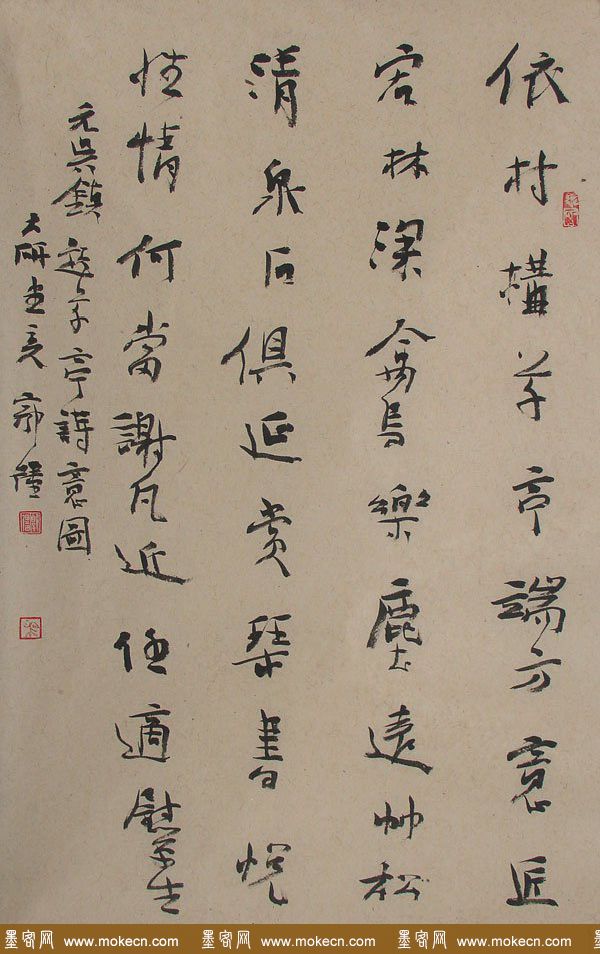 依村構草亭端方意匠
宏林深禽鳥樂塵遠竹松
清泉石俱延賞琴書悅
性情何當謝凡近任適慰平生
元吳鎮草亭詩意圖
大研郭
墨客网 www.mokecn.com 墨客网 www.mokecn.com 墨客网 www.mokecn.com